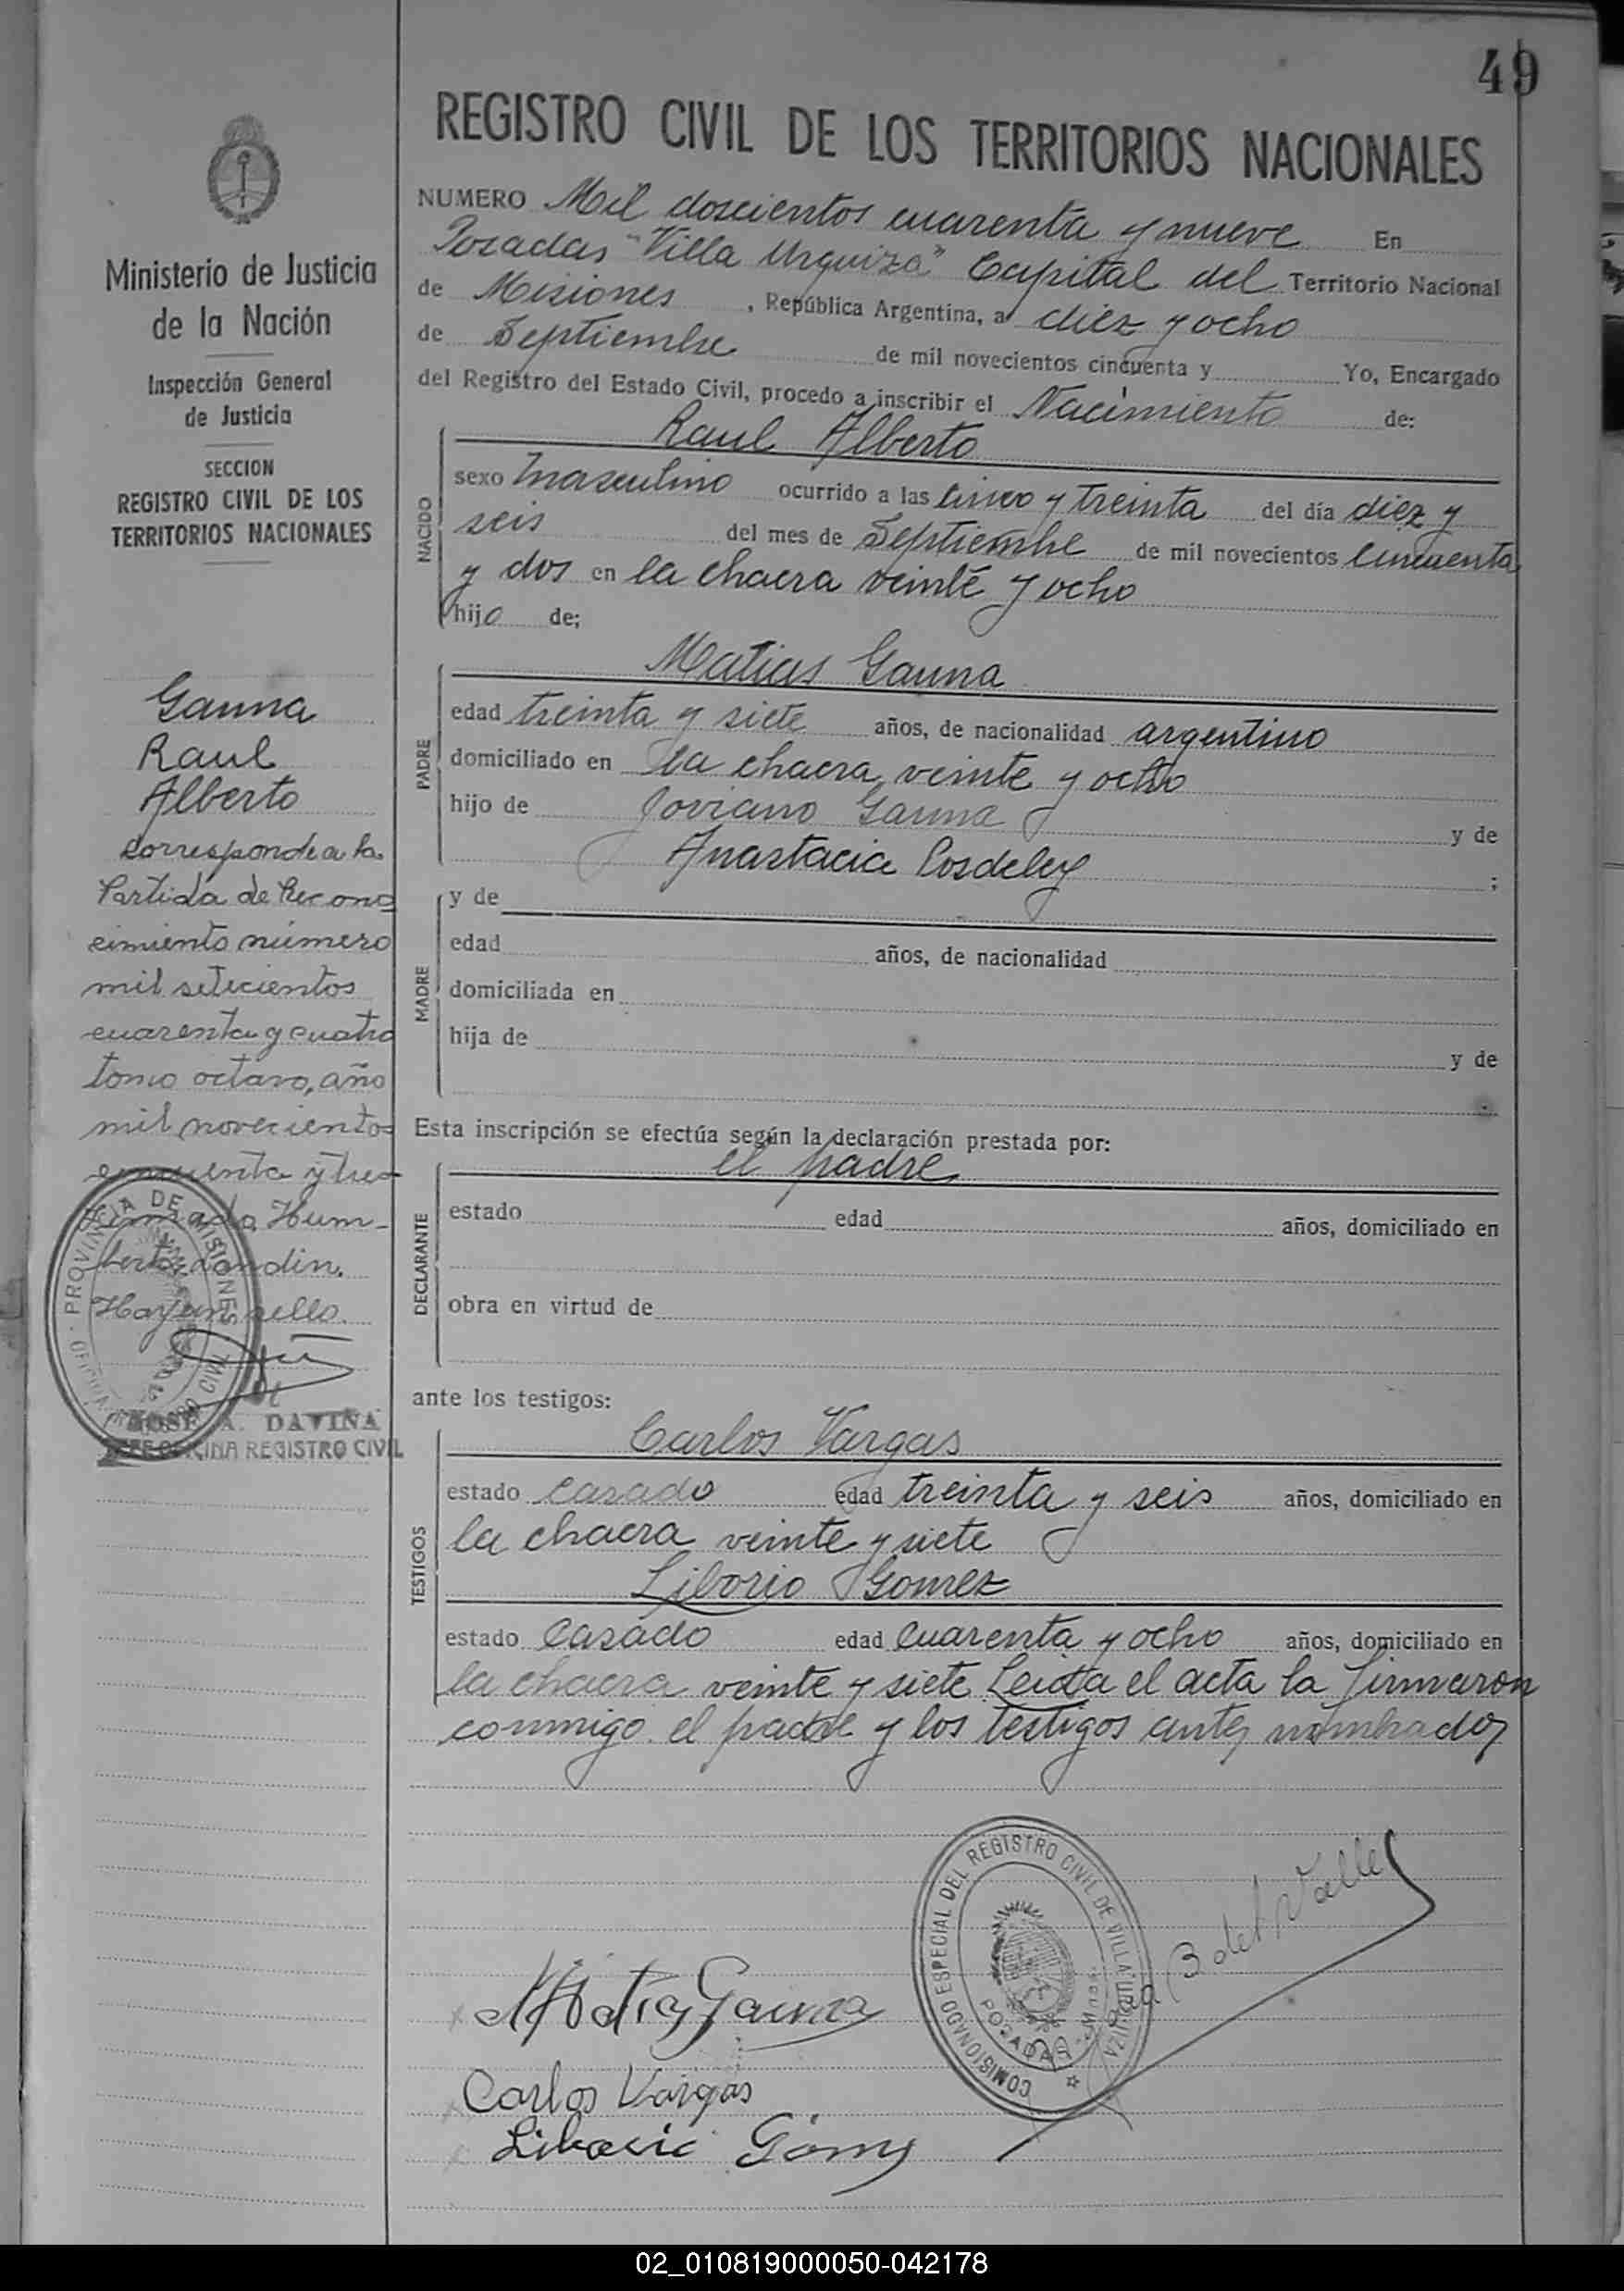 49
REGISTRO CIVIL DE LOS TERRITORIOS NACIONALES
Ministerio de Justicia
de la Nación
Inspección General
de Justicia
SECCION
REGISTRO CIVIL DE LOS
TERRITORIOS NACIONALES
Gauna
Raul
Alberto
Corresponde a la
Partida de Recono
cimiento número
mil setecientos
cuarenta y cuatro
tomo octavo, año
mil novecientos
cincuenta y tres
Firmado, Hum-
berto Landin.
Hay un sello.
PROVINCIA DE MISIONES
JOSE A. DAVIÑA
JEFE OFICINA REGISTRO CIVIL
NUMERO Mil doscientos cuarenta y nueve En
Posadas "Villa Urquiza" Capital del Territorio Nacional
de Misiones, República Argentina, a diez y ocho
de Septiembre de mil novecientos cincuenta y Yo, Encargado
del Registro del Estado Civil, procedo a inscribir el Nacimiento de:
NACIDO
Raul Alberto
sexo masculino ocurrido a las cinco y treinta del día diez y
seis del mes de Septiembre de mil novecientos cincuenta
y dos en la chacra veinte y ocho
hijo de;
PADRE
Matias Gauna
edad treinta y siete años, de nacionalidad argentino
domiciliado en la chacra veinte y ocho
hijo de Joviano Gauna y de
Anastacia Cosdeley ;
MADRE
y de
edad años, de nacionalidad
domiciliada en
hija de y de
Esta inscripción se efectúa según la declaración prestada por:
DECLARANTE
el padre
estado edad años, domiciliado en
obra en virtud de
ante los testigos:
TESTIGOS
Carlos Vargas
estado casado edad treinta y seis años, domiciliado en
la chacra veinte y siete
Liborio Gomez
estado casado edad cuarenta y ocho años, domiciliado en
la chacra veinte y siete Leida el acta la firmaron
conmigo el padre y los testigos antes nombrados
COMISIONADO ESPECIAL DEL REGISTRO CIVIL DE VILLA URQUIZA
POSADAS - Mnes.
B del Valle
Matias Gauna
Carlos Vargas
Liborio Gomez
02_010819000050-042178